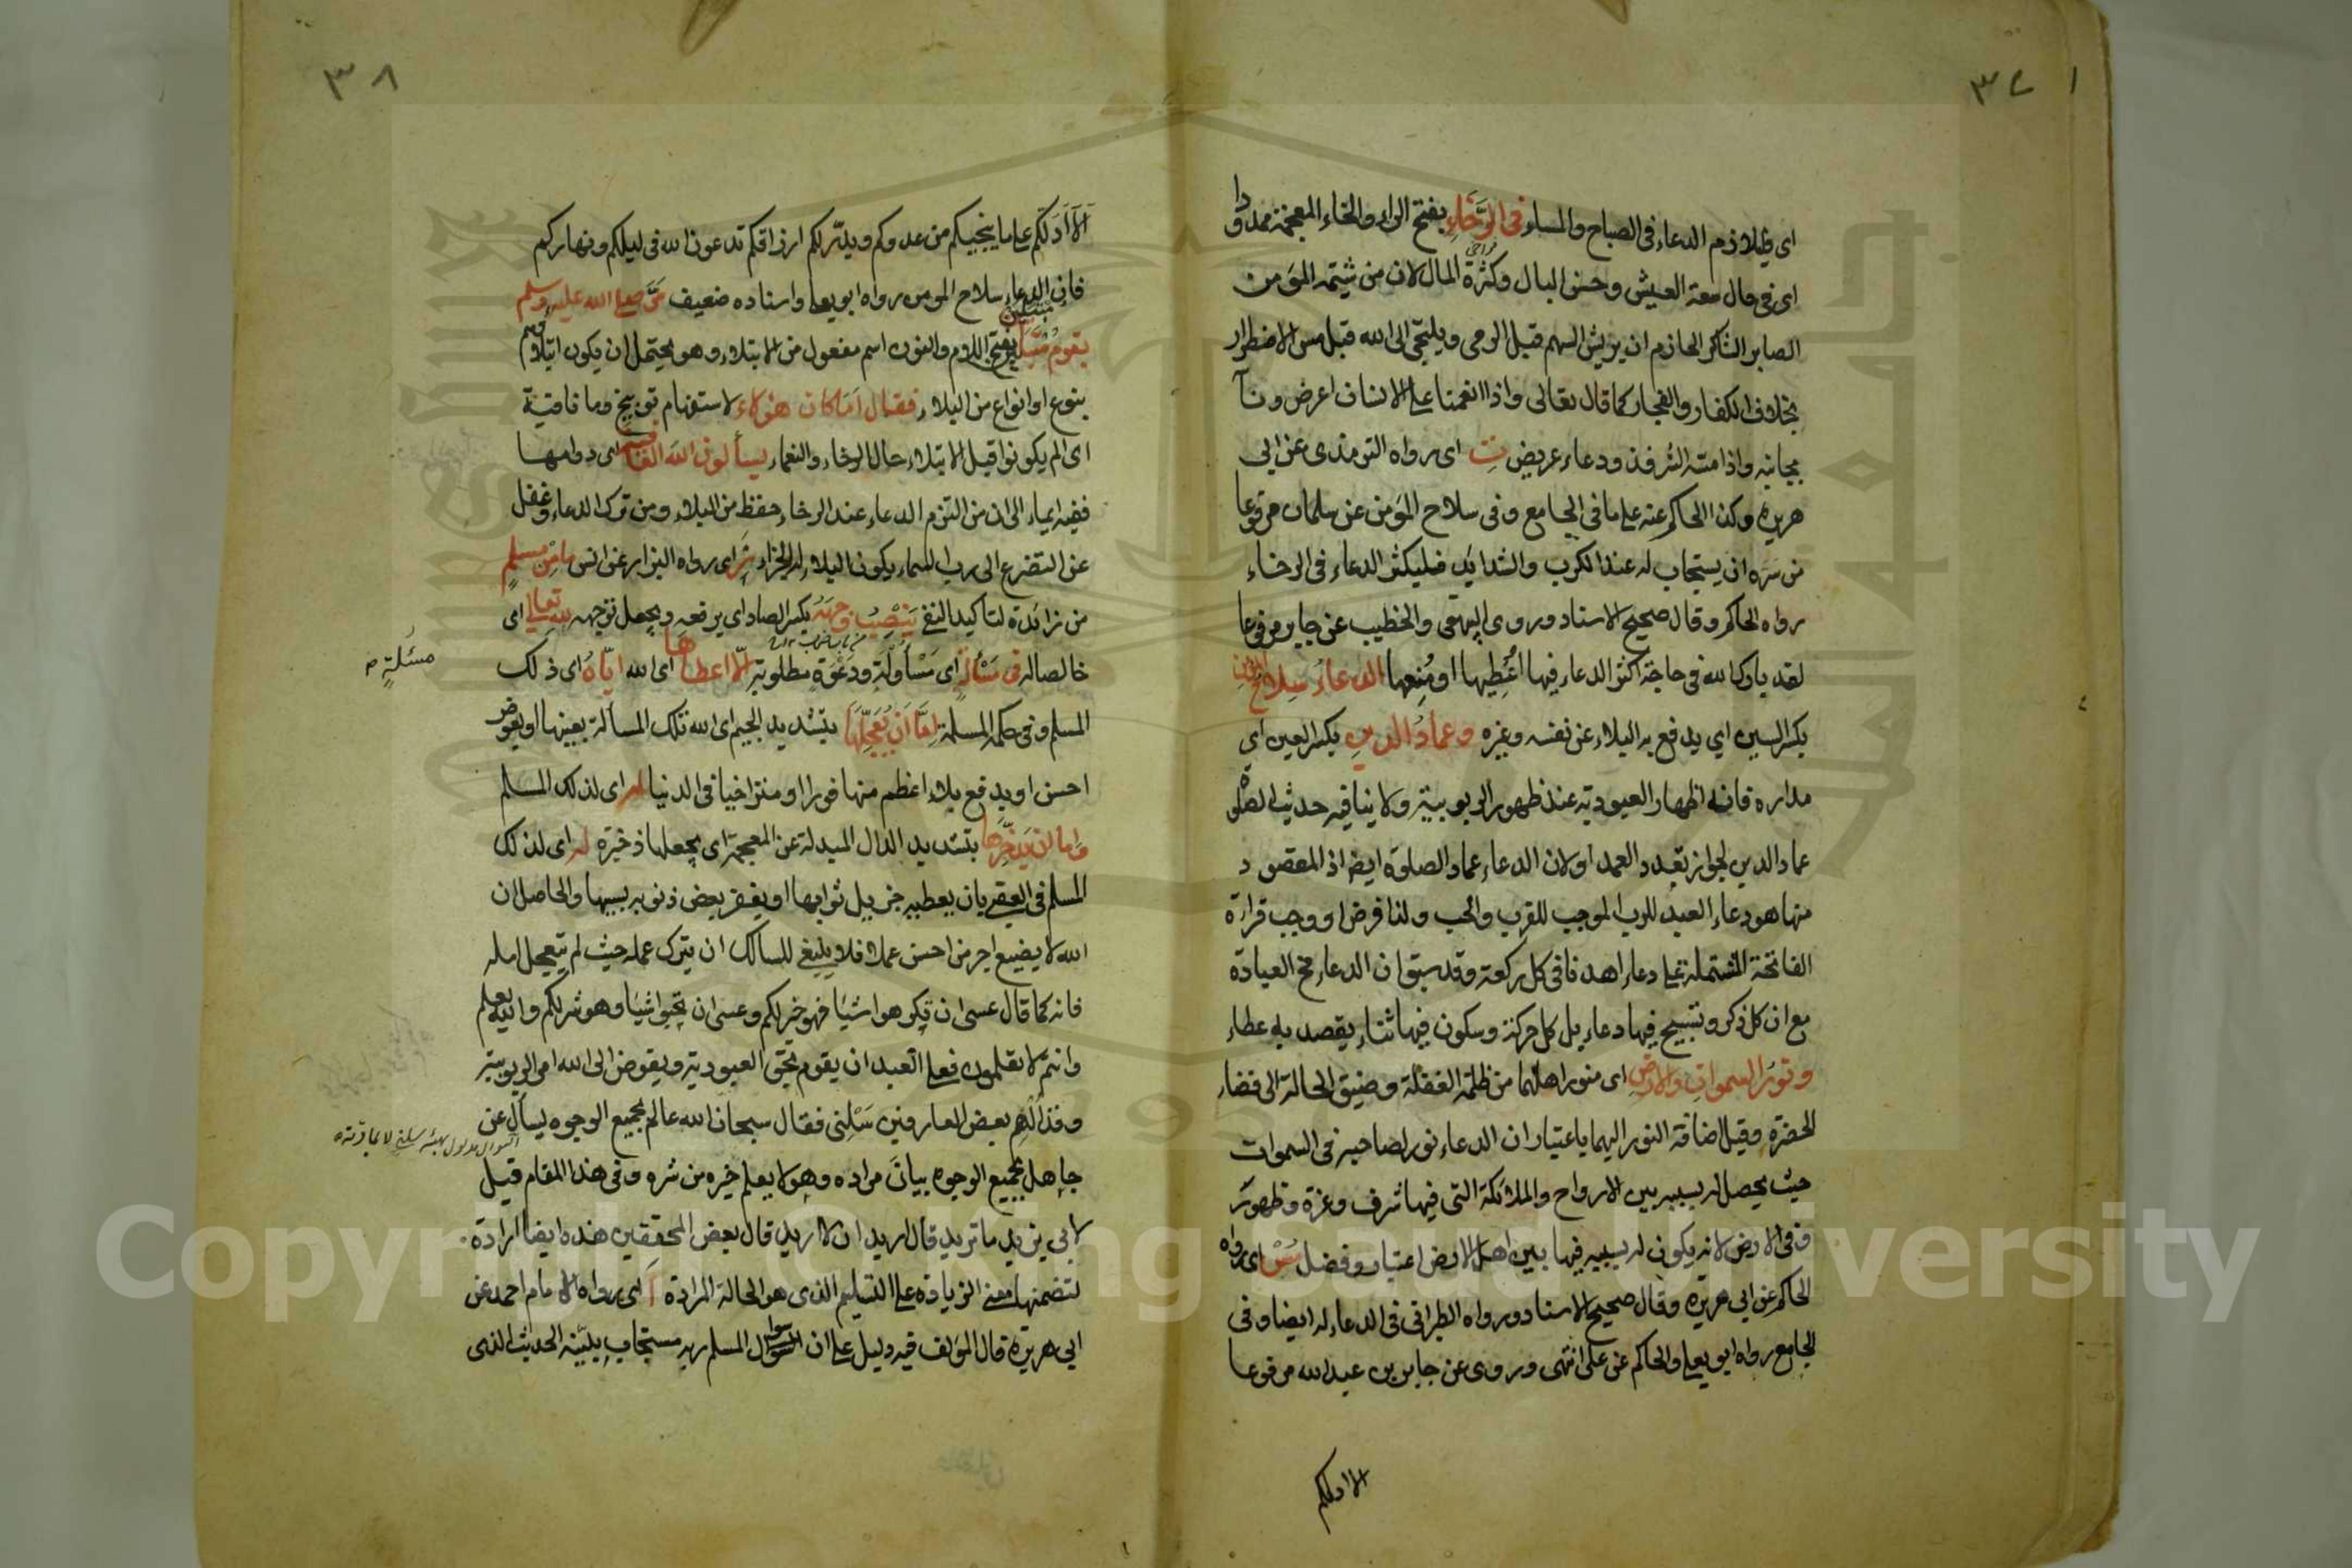 ٣٧
اى يلازم الدعاء فى الصباح والمساء فى الرَّخَاءِ بفتح الراء والخاء المعجمة ممدودا
اى فى حال سعة العيش وحسن البال وكثرة المال لان من شيمة المؤمن
الصابر الشاكر الحازم ان يريش السهم قبل الرمى ويلتجئ الى الله قبل مس الاضطرار
بخلاف الكفار والفجار كما قال تعالى واذا انعمنا على الانسان اعرض ونآ
بجانبه واذا مسه الشر فذو دعاء عريض ت اى رواه الترمذى عن ابى
هريرة وكذا الحاكم عنه على ما فى الجامع وفى سلاح المؤمن عن سلمان مرفوعا
من سره ان يستجاب له عند الكرب والشدايد فليكثر الدعاء فى الرخاء
رواه الحاكم وقال صحيح الاسناد وروى البيهقى والخطيب عن جابر مرفوعا
لقد بارك الله فى حاجة اكثر الدعاء فيها اُعْطِيها او مُنِعها الدعاءُ سِلاحُ المؤمن
بكسر السين اي يدفع به البلاء عن نفسه وغيره وعمادُ الدينِ بكسر العين اي
مداره فانه اظهار العبودية عند ظهور الربوبية ولا ينافيه حديث الصلوة
عماد الدين لجواز تعدد العمد او لان الدعاء عماد الصلوة ايضا اذ المقصود
منها هو دعاء العبد للرب الموجب للقرب والحب ولذا فرض او وجب قراءة
الفاتحة المشتملة على دعاء اهدنا فى كل ركعة وقد سبق ان الدعاء مخ العبادة
مع ان كل ذكر وتسبيح فيها دعاء بل كل حركة وسكون فيها ثناء يقصد به عطاء
ونورُ السمواتِ والارضِ اى منور اهلهما من ظلمة الغفلة وضيق الحالة الى فضاء
الحضرة وقيل اضافة النور اليهما باعتبار ان الدعاء نور لصاحبه فى السموات
حيث يحصل له بسببه بين الارواح والملائكة التى فيها شرف وعزة وظهور
وفى الارض لانه يكون له بسببه فيها بين اهل الارض اعتبار وفضل مُسْ اى رواه
الحاكم عن ابى هريرة وقال صحيح الاسناد ورواه الطبرانى فى الدعاء له ايضا وفى
الجامع رواه ابو يعلى والحاكم عن على انتهى وروى عن جابر بن عبد الله مرفوعا
الا ادلكم
٣٨
اَلاَ اَدُلّكم على ما ينجيكم من عدوكم ويدرّ لكم ارزاقكم تدعون الله فى ليلكم ونهاركم
فان الدعاء سلاح المؤمن رواه ابو يعلى واسناده ضعيف مَرَّ صلى الله عليه وسلم
بقوم مبتلين بفتح اللام والنون اسم مفعول من الابتلاء وهو يحتمل ان يكون ابتلاؤهم
بنوع او انواع من البلاء فقال اَمَا كان هؤلاء الاستفهام توبيخ وما نافية
اى الم يكونوا قبل الابتلاء حال الرخاء والنعماء يسألون الله العافية اى دوامها
ففيه ايماء الى ان من التزم الدعاء عند الرخاء حفظ من البلاء ومن ترك الدعاء وغفل
عن التضرع الى رب السماء يكون البلاء له الجزاء ر اى رواه البزار عن انس ما مِن مسلمٍ
من زائدة لتأكيد النفى يَنْصِبُ وجهَهُ بكسر الصاد اى يرفعه ويجعل توجهه لله تعالى اى
خالصا له فى مَسْألةٍ اى مَسْأُولَةٍ ودَعْوَةٍ مطلوبة اِلّا اعطاها اى الله اِيّاهُ اى ذلك
مسئلةٍ
المسلم وفى حكمه المسلمة اِمَّا اَن يُعَجِّلَهَا بتشديد الجيم اى الله تلك المسألة بعينها او يعوض
احسن او يدفع بلاء اعظم منها فورا او متراخيا فى الدنيا له اى لذلك المسلم
واما ان يدّخِرها بتشديد الدال المبدلة عن المعجمة اى يجعلها ذخيرة له اى لذلك
المسلم فى العقبى بان يعطيه جزيل ثوابها او يغفر بعض ذنوبه بسببها والحاصل ان
الله لا يضيع اجر من احسن عملا فلا ينبغى للسالك ان يترك عمله حيث لم يتعجل امله
فانه كما قال عسى ان تكرهوا شيئا فهو خير لكم وعسى ان تحبوا شيئا وهو شر لكم والله يعلم
وانتم لا تعلمون فعلى العبد ان يقوم بحق العبودية ويفوض الى الله امر الربوبية
بعض العارفين سَلْنِى فقال سبحان الله عالم بجميع الوجوه يسأل عن
جاهل بجميع الوجوه بيان مراده وهو لا يعلم خيره من شره وفى هذا المقام قيل
لابى يزيد ما تريد قال اريد ان لا اريد قال بعض المحققين هذه ايضا ارادة
لتضمنها معنى الزيادة على التسليم الذى هو الحالة المرادة أ اى رواه الامام احمد عن
ابى هريرة قال المؤلف فيه دليل على ان سؤال المسلم ربه مستجاب يبيّنه الحديث الذى
Copyright © King Saud University